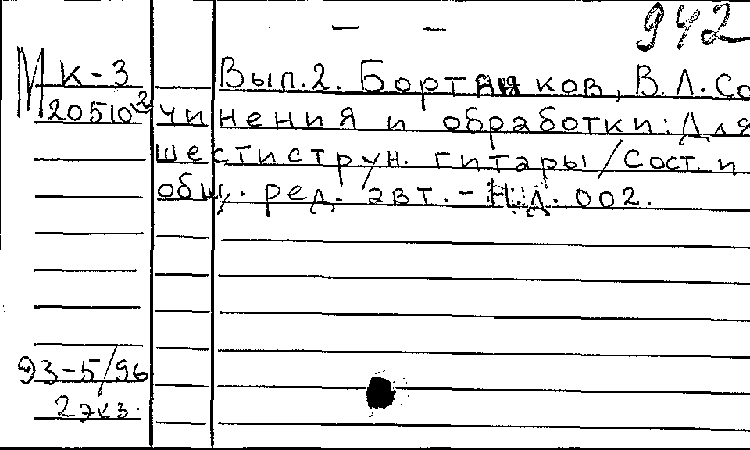 — —
942
М К-3
20510-2
Вып.2. Бортянков, В.Л. Со
чинения и обработки: Для
шестиструн. гитары / Сост. и
общ. ред. авт. – Н.Д. 002.
93-5/96
2 экз.